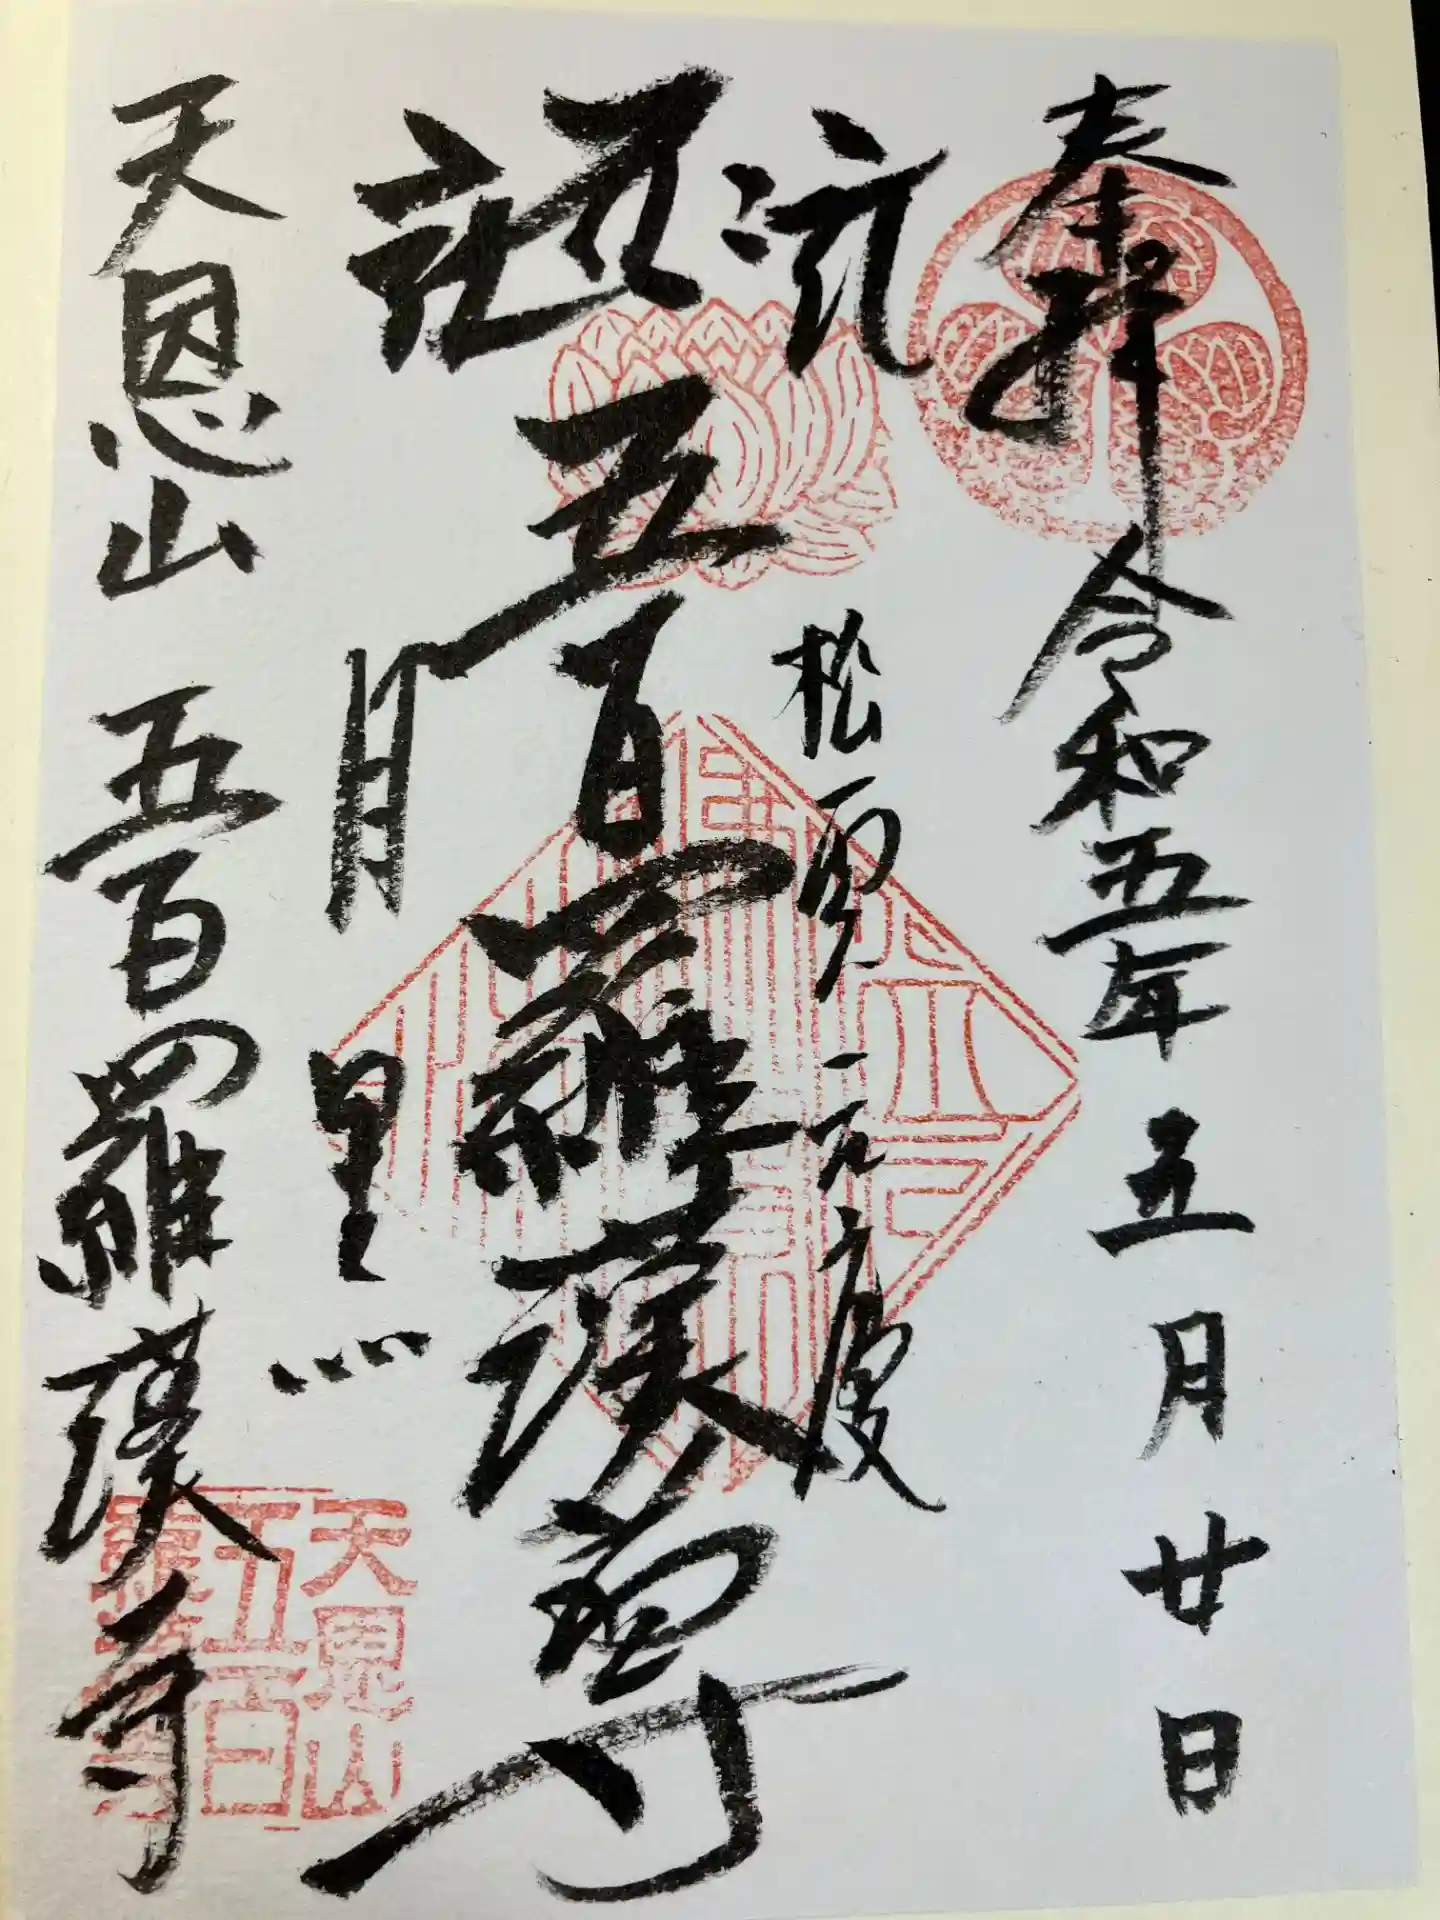 奉拝 令和五年 五月廿日
松雲 元慶
五百羅漢尊
目黒
天恩山 五百羅漢寺
天恩山
五百
羅漢寺